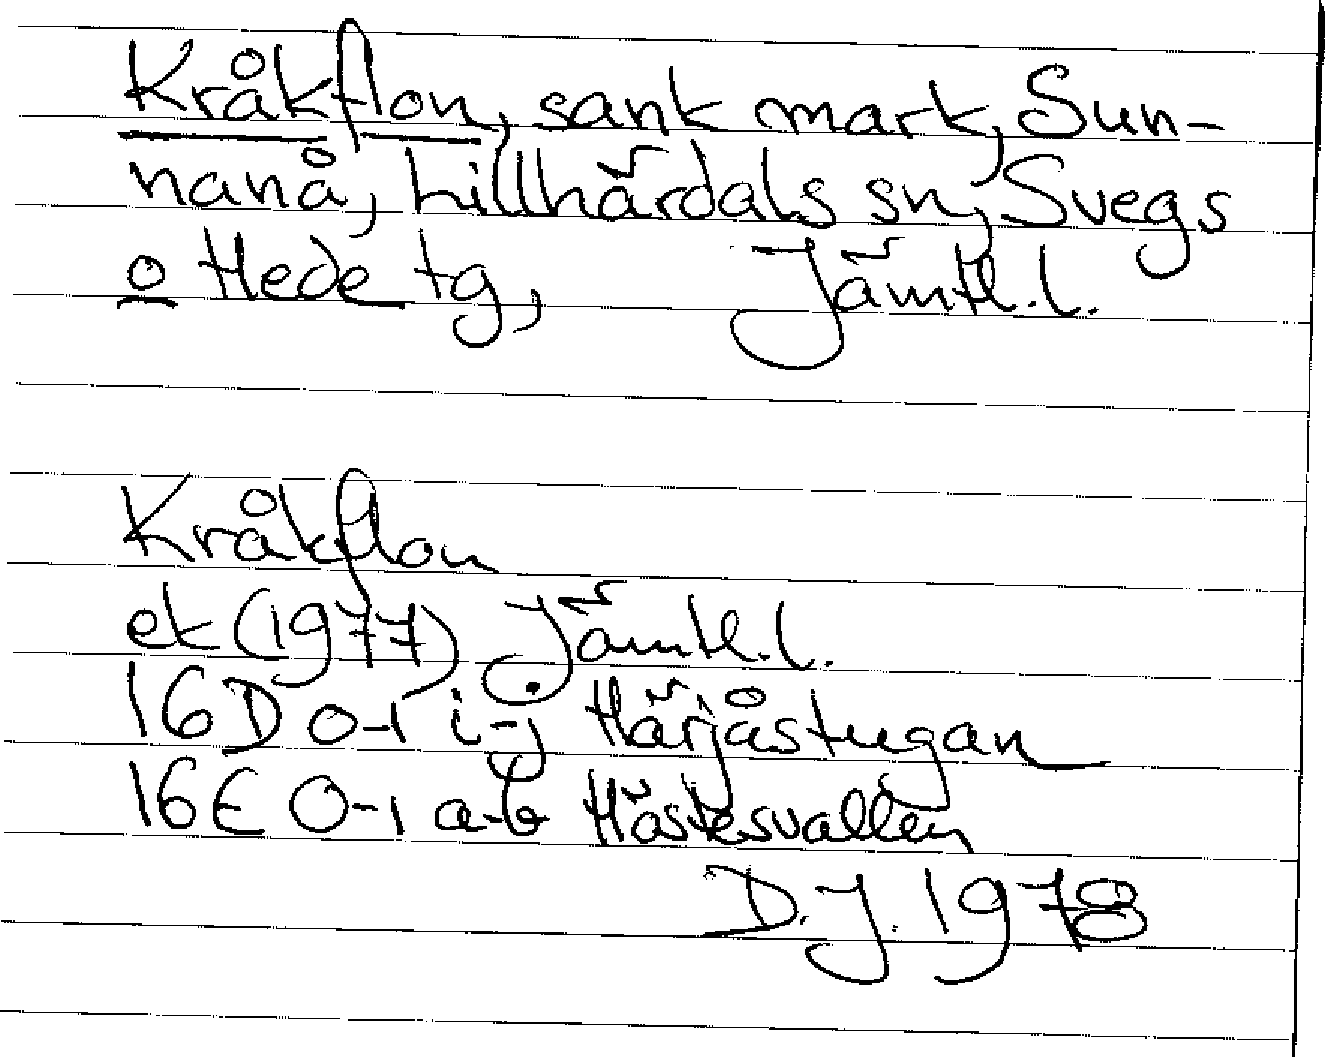 Kråkflon, sank mark, Sun-
nanå, Lillhärdals sn, Svegs
o Hede tg, Jämtl.l.
Kråkflon
ek (1977) Jämtl.l.
16D 0-1 i-j Härjåstugan
16E 0-1 a-b Höstesvallen
D.J. 1978